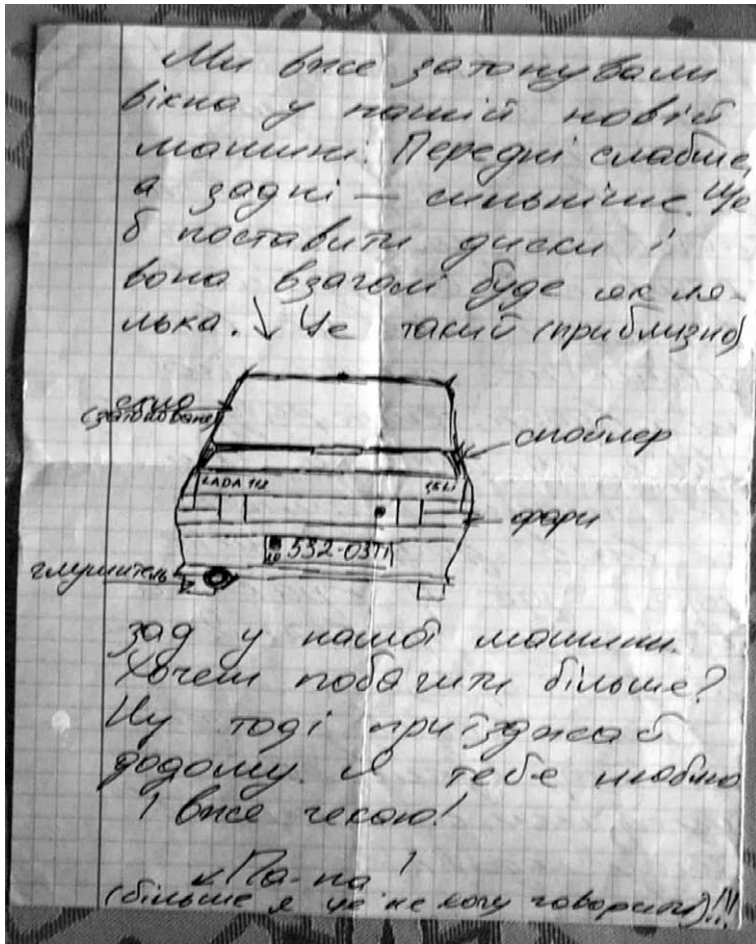 Ми вже затонували
вікна у нашій новій
машині. Передні слабше,
а задні — сильніше. Ще
б поставити диски і
вона взагалі буде як ля-
лька. ↓ Це такий (приблизно)
скло
(затоноване)
спойлер
LADA 112
1,5Li
фари
532-03ТІ
глушитель
зад у нашої машини.
Хочеш побачити більше?
Ну тоді приїзджай
додому. Я тебе люблю
І вже чекаю!
"Па-па!
(більше я це не могу говорити)!!!